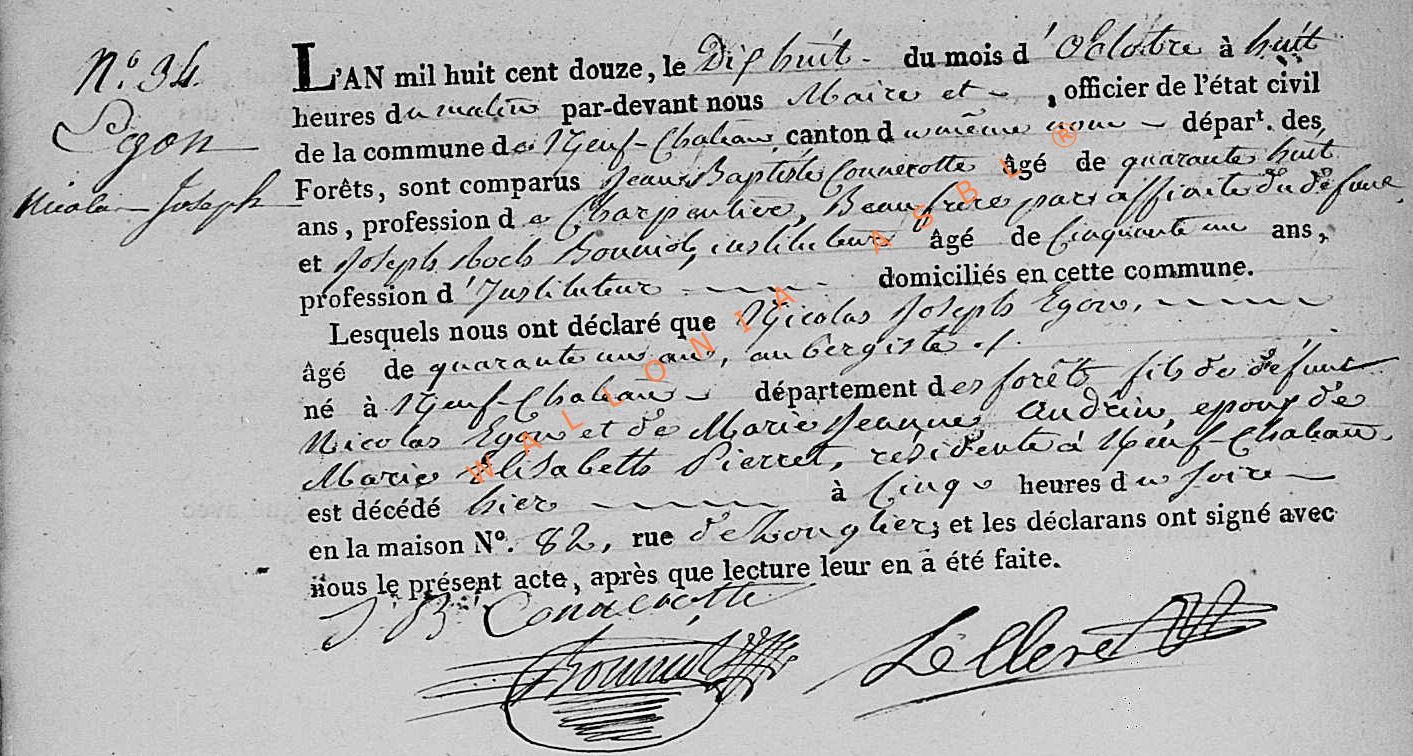 N.° 34.
Egon
Nicolas Joseph
L'AN mil huit cent douze, le Dix huit - du mois d'Octobre à huit
heures du matin par-devant nous Maire et , officier de l'état civil
de la commune de Neuf-Chateau, canton du même nom - départ. des
Forêts, sont comparus Jean Baptiste Connerotte âgé de quarante huit
ans, profession de Charpentier, Beau frere par affinité du défunt,
et Joseph Roch instituteur âgé de Cinquante un ans,
profession d'Instituteur domiciliés en cette commune.
Lesquels nous ont déclaré que Nicolas Joseph Egon,
âgé de quarante un ans, aubergiste ./.
né à Neuf-Chateau - département des forêts fils de défunt
Nicolas Egon et de Marie Jeanne Andrin, epoux de
Marie Elisabeth Pierret, residente à Neuf-Chateau
est décédé hier à Cinq heures du soire
en la maison N°. 82, rue de , et les déclarans ont signé avec
nous le présent acte, après que lecture leur en a été faite.
J. B. Connerotte
WALLONIA ASBL ®